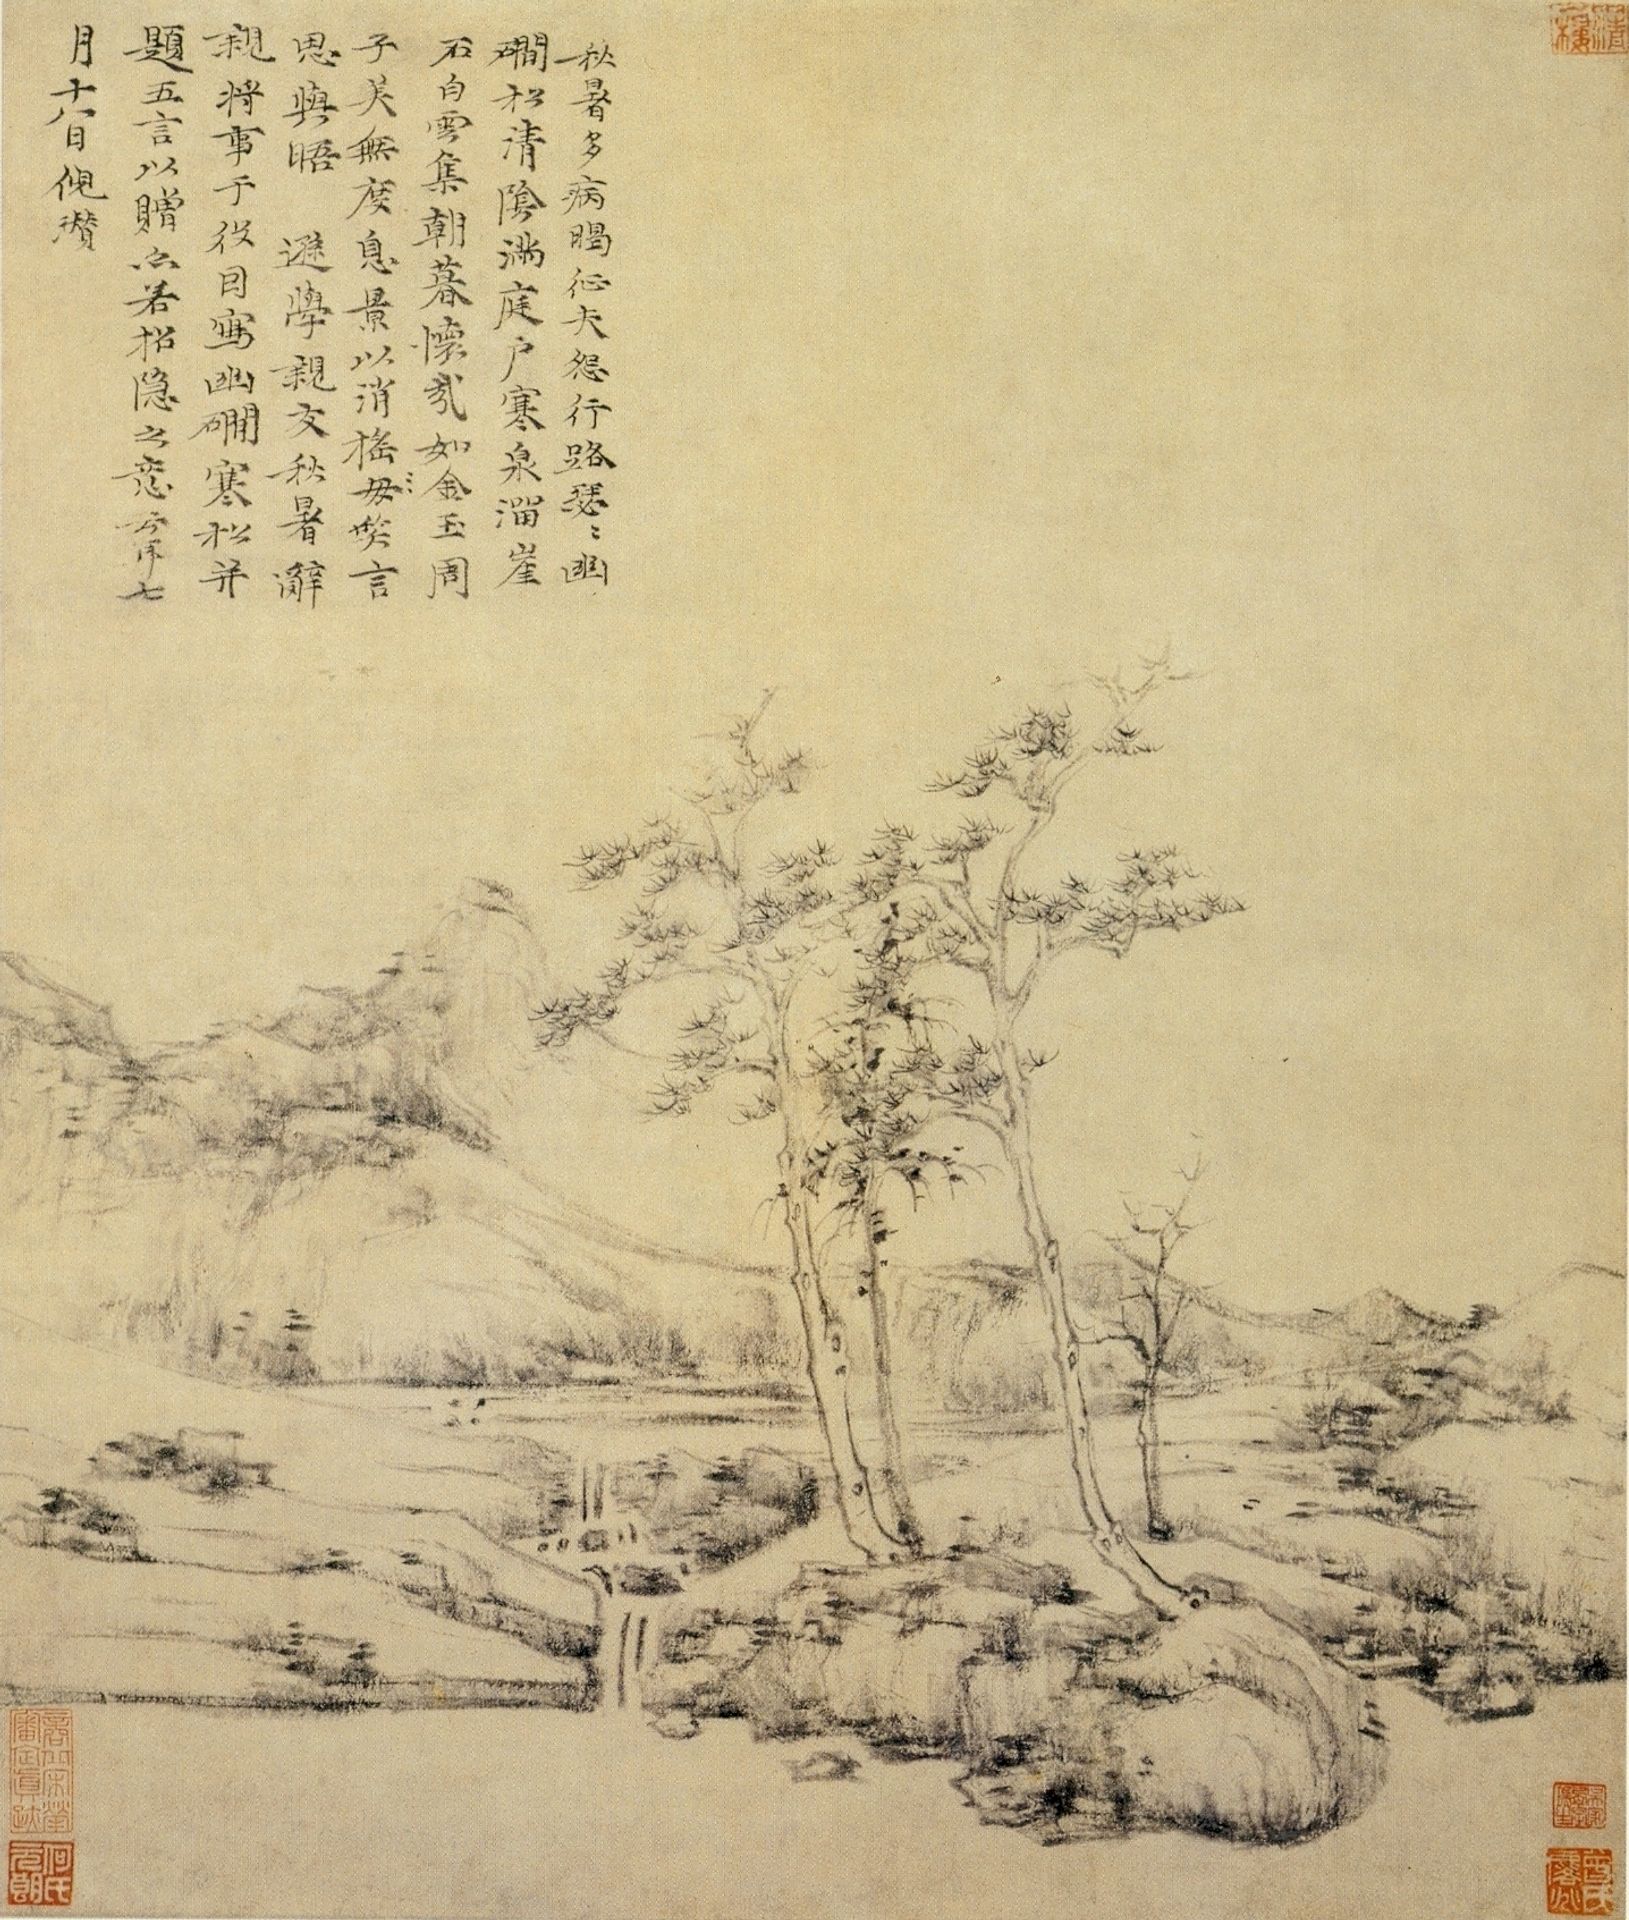 秋暑多病暍征夫怨行路瑟〻幽
磵松清陰滿庭戶寒泉溜崖
石白雲集朝暮懷哉如金玉周
子美無度息景以消搖毋笑言
思與晤 遜學親友秋暑辭
親將事于役因寫幽磵寒松并
題五言以贈亦若招隱之意云耳七
月十八日倪瓚
商丘宋犖
審定真跡
何氏
元朗